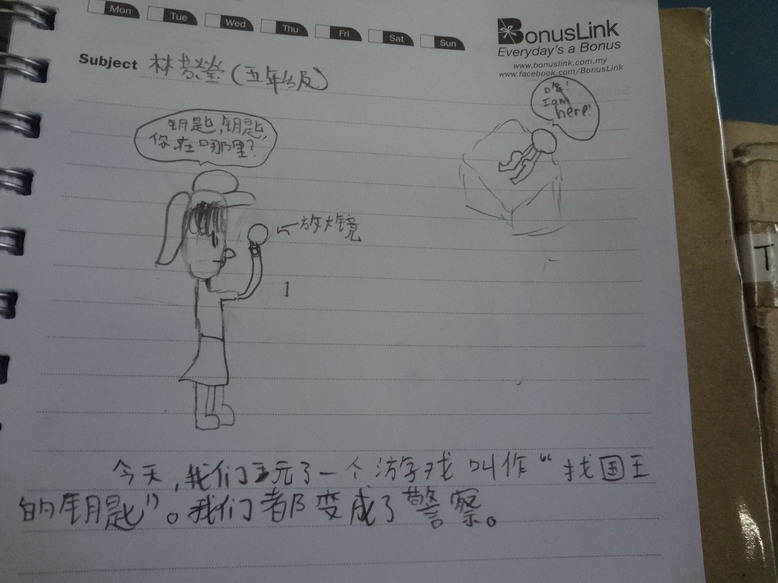 Mon Tue Wed Thu Fri Sat Sun
BonusLink
Everyday's a Bonus
www.bonuslink.com.my
www.facebook.com/BonusLink
Subject 林
I am
here!
钥匙,钥匙,
你在哪里?
放大镜
今天,我们玩了一个游戏叫作“找国王
的钥匙”。我们都变成了警察。